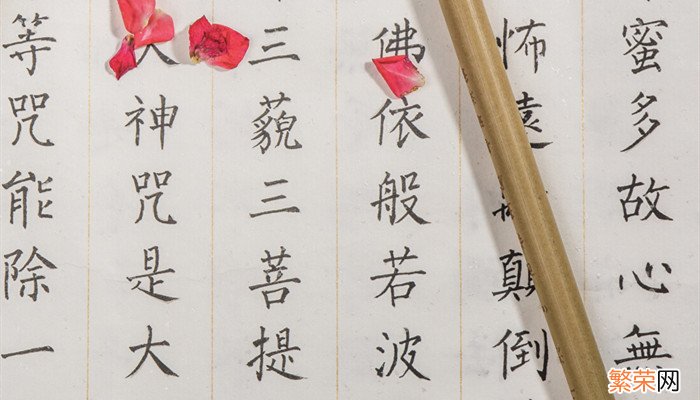 蜜多故心無
怖遠顛倒
佛依般若波
三藐三菩提
神咒是大
等咒能除一
繁荣网